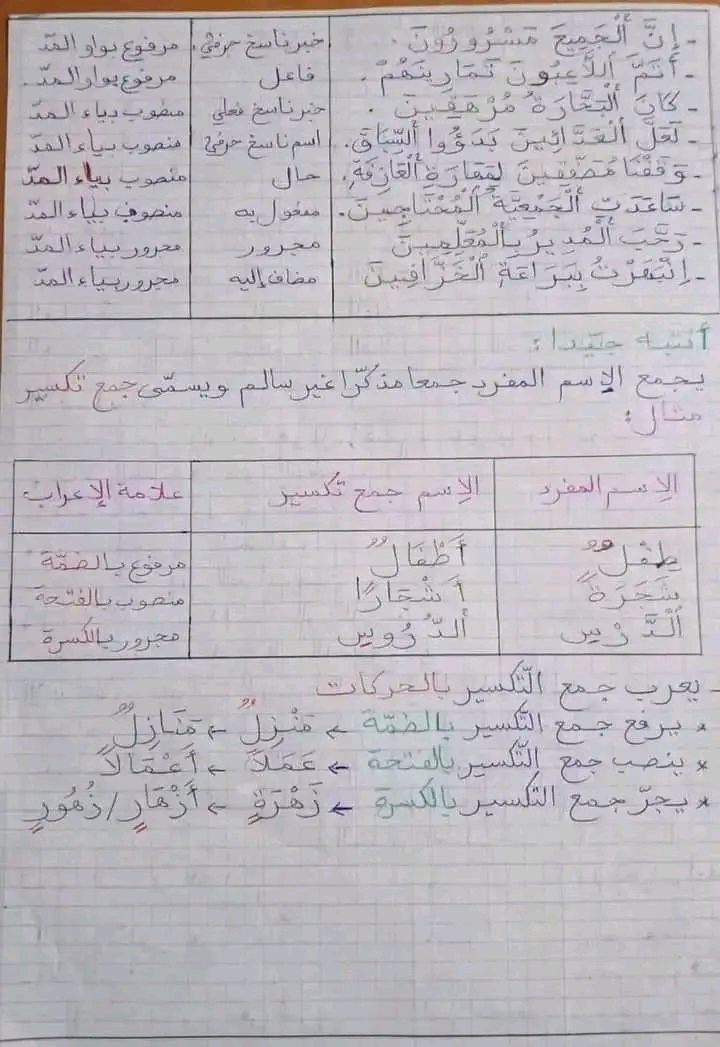 - إِنَّ ٱلْجَمِيعَ مَسْرُورُونَ. خبر ناسخ حرفيّ. مرفوع بواو المدّ
- أَتَمَّ ٱللَّاعِبُونَ تَمَارِينَهُمْ. فاعل مرفوع بواو المدّ.
- كَانَ ٱلْبَحَّارَةُ مُرْهَقِينَ. خبر ناسخ فعلي منصوب بياء المدّ
- لَعَلَّ ٱلْعَدَّائِينَ بَدَؤُوا ٱلسِّبَاقَ. اسم ناسخ حرفيّ منصوب بياء المدّ
- وَقَفْنَا مُصَفِّقِينَ لِمَهَارَةِ ٱلْعَازِفَةِ. حال منصوب بياء المدّ
- سَاعَدَتِ ٱلْجَمْعِيَّةُ ٱلْمُحْتَاجِينَ. مفعول به منصوب بياء المدّ
- رَحَّبَ ٱلْمُدِيرُ بِٱلْمُعَلِّمِينَ مجرور مجرور بياء المدّ
- اِنْبَهَرْتُ بِبَرَاعَةِ ٱلْخَزَّافِينَ مضاف إليه مجرور بياء المدّ
أنتبه جيّدا:
يجمع الإسم المفرد جمعا مذكّرا غير سالم ويسمّى جمع تكسير
مثال:
الإسم المفرد الإسم جمع تكسير علامة الإعراب
طِفْلٌ أَطْفَالٌ مرفوع بالضمّة
شَجَرَةً أَشْجَارًا منصوب بالفتحة
ٱلدَّرْسِ ٱلدُّرُوسِ مجرور بالكسرة
- يعرب جمع التّكسير بالحركات
* يرفع جمع التّكسير بالظمّة ← مَنْزِلٌ ← مَنَازِلٌ
* ينصب جمع التّكسير بالفتحة ← عَمَلًا ← أَعْمَالًا
* يجرّ جمع التكسير بالكسرة ← زَهْرَةٍ ← أَزْهَارٍ / زُهُورٍ